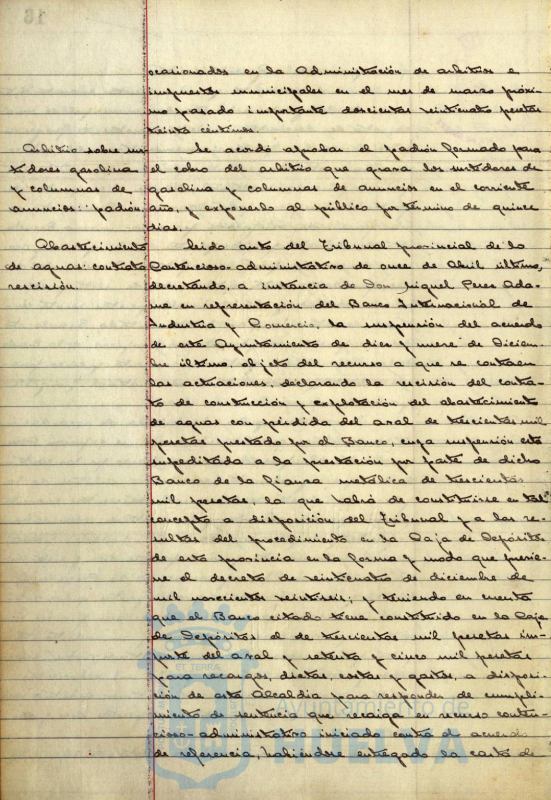 16
ocasionados en la Administración de arbitrios e
impuestos municipales en el mes de marzo próxi-
mo pasado importante doscientas veinticuatro pesetas
treinta céntimos.
Arbitrio sobre sur-
tidores gasolina
y columnas de
anuncios: padrón.
Se acordó aprobar el padrón formado para
el cobro del arbitrio que grava los surtidores de
gasolina y columnas de anuncios en el corriente
año, y exponerlo al público por término de quince
días.
Abastecimiento
de aguas: contrato
rescisión.
Leido auto del Tribunal provincial de lo
Contencioso-administrativo de once de Abril último,
decretando, a instancia de Don Miguel Peres Ada-
me en representación del Banco Internacional de
Industria y Comercio, la suspensión del acuerdo
de este Ayuntamiento de dies y nueve de Diciem-
bre último, objeto del recurso a que se contraen
las actuaciones, declarando la rescisión del contra-
to de construcción y explotación del abastecimiento
de aguas con pérdida del aval de trescientas mil
pesetas prestado por el Banco, cuya suspensión está
supeditada a la prestación por parte de dicho
Banco de la fianza metálica de trescientas
mil pesetas, la que habrá de constituirse en tal
concepto a disposición del Tribunal y a las re-
sultas del procedimiento en la Caja de Depósitos
de esta provincia en la forma y modo que previe-
ne el decreto de veinticuatro de diciembre de
mil novecientos veintiseis; y teniendo en cuenta
que el Banco citado tiene constituido en la Caja
de Depósitos el de trescientas mil pesetas im-
porte del aval y setenta y cinco mil pesetas
para recargos, dietas, costas y gastos, a disposi-
ción de esta Alcaldia para responder de cumpli-
miento de sentencia que recaiga en recurso conten-
cioso-administrativo iniciado contra el acuerdo
de referencia, habiéndose entregado la carta de
Ayuntamiento de
HUELVA